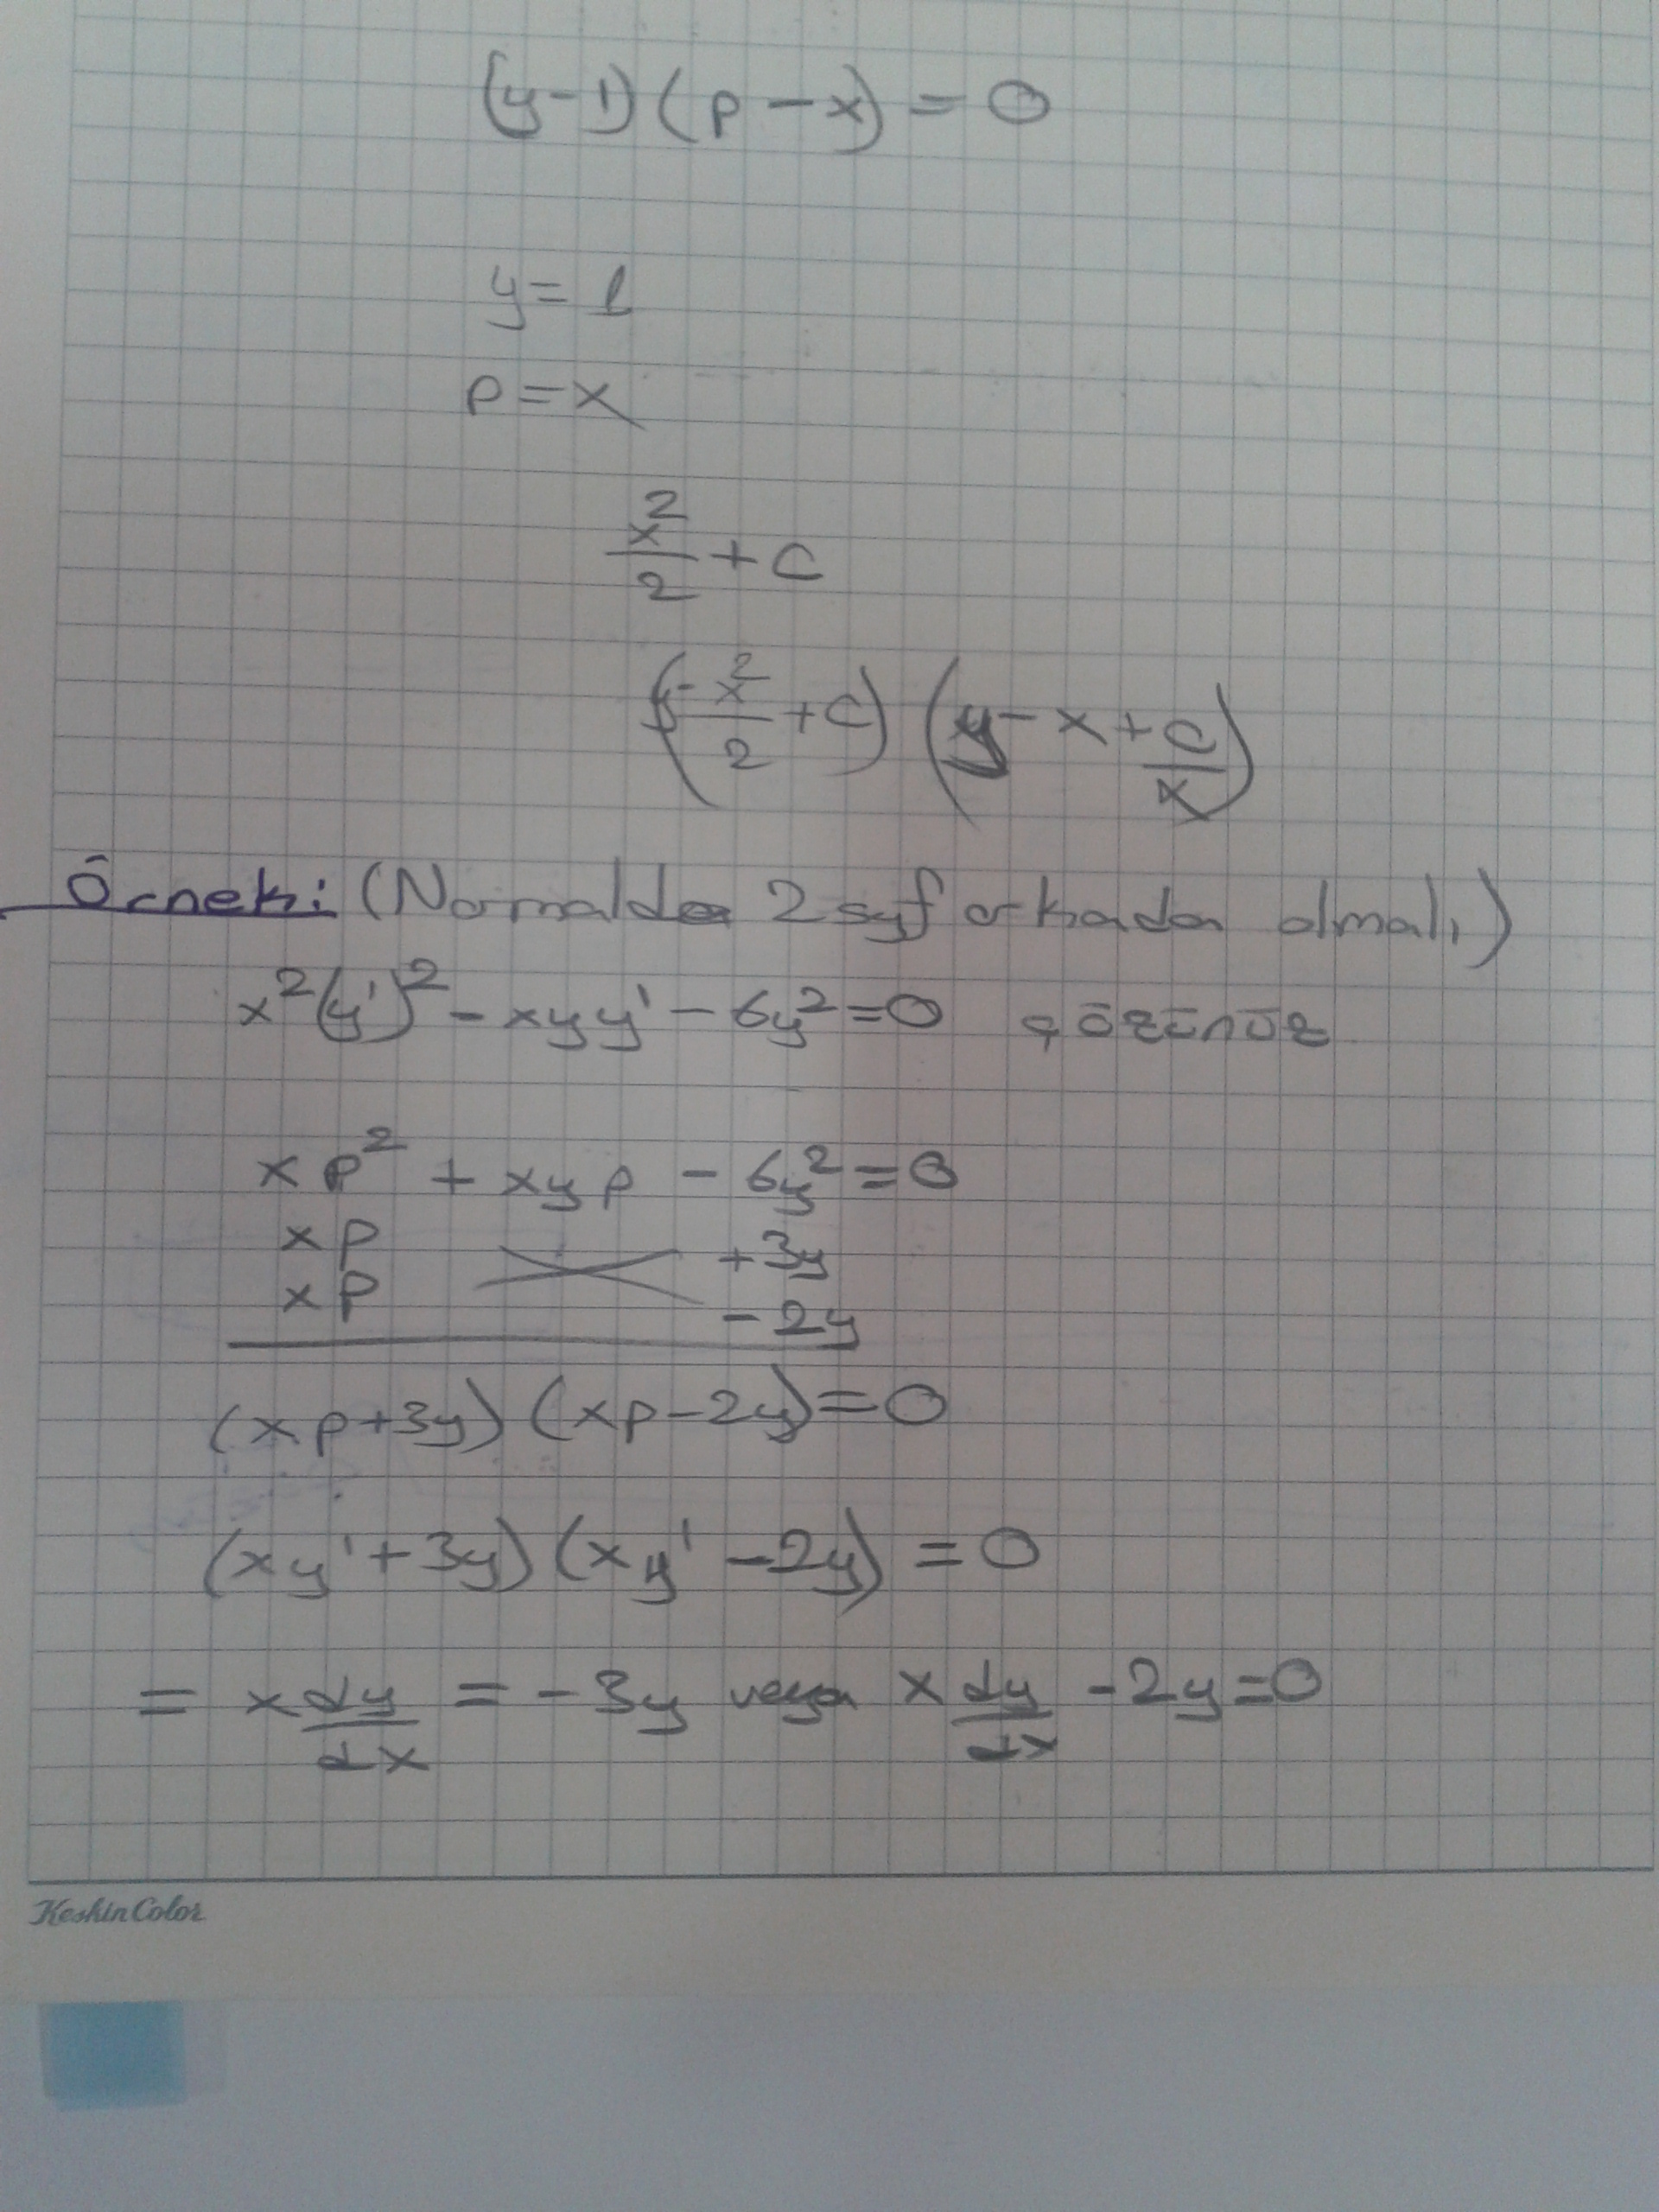 (y-1)(p-x)=0
y=1
p=x
x²/2+c
(y-x²/2+c)(y-x+c/x)
Örnek: (Normalde 2 syf arkada olmalı)
x²(y')²-xyy'-6y²=0 çözünüz
xp²+xyp-6y²=0
xp +3y
xp -2y
(xp+3y)(xp-2y)=0
(xy'+3y)(xy'-2y)=0
= x dy/dx = -3y veya x dy/dx -2y=0
KeskinColor